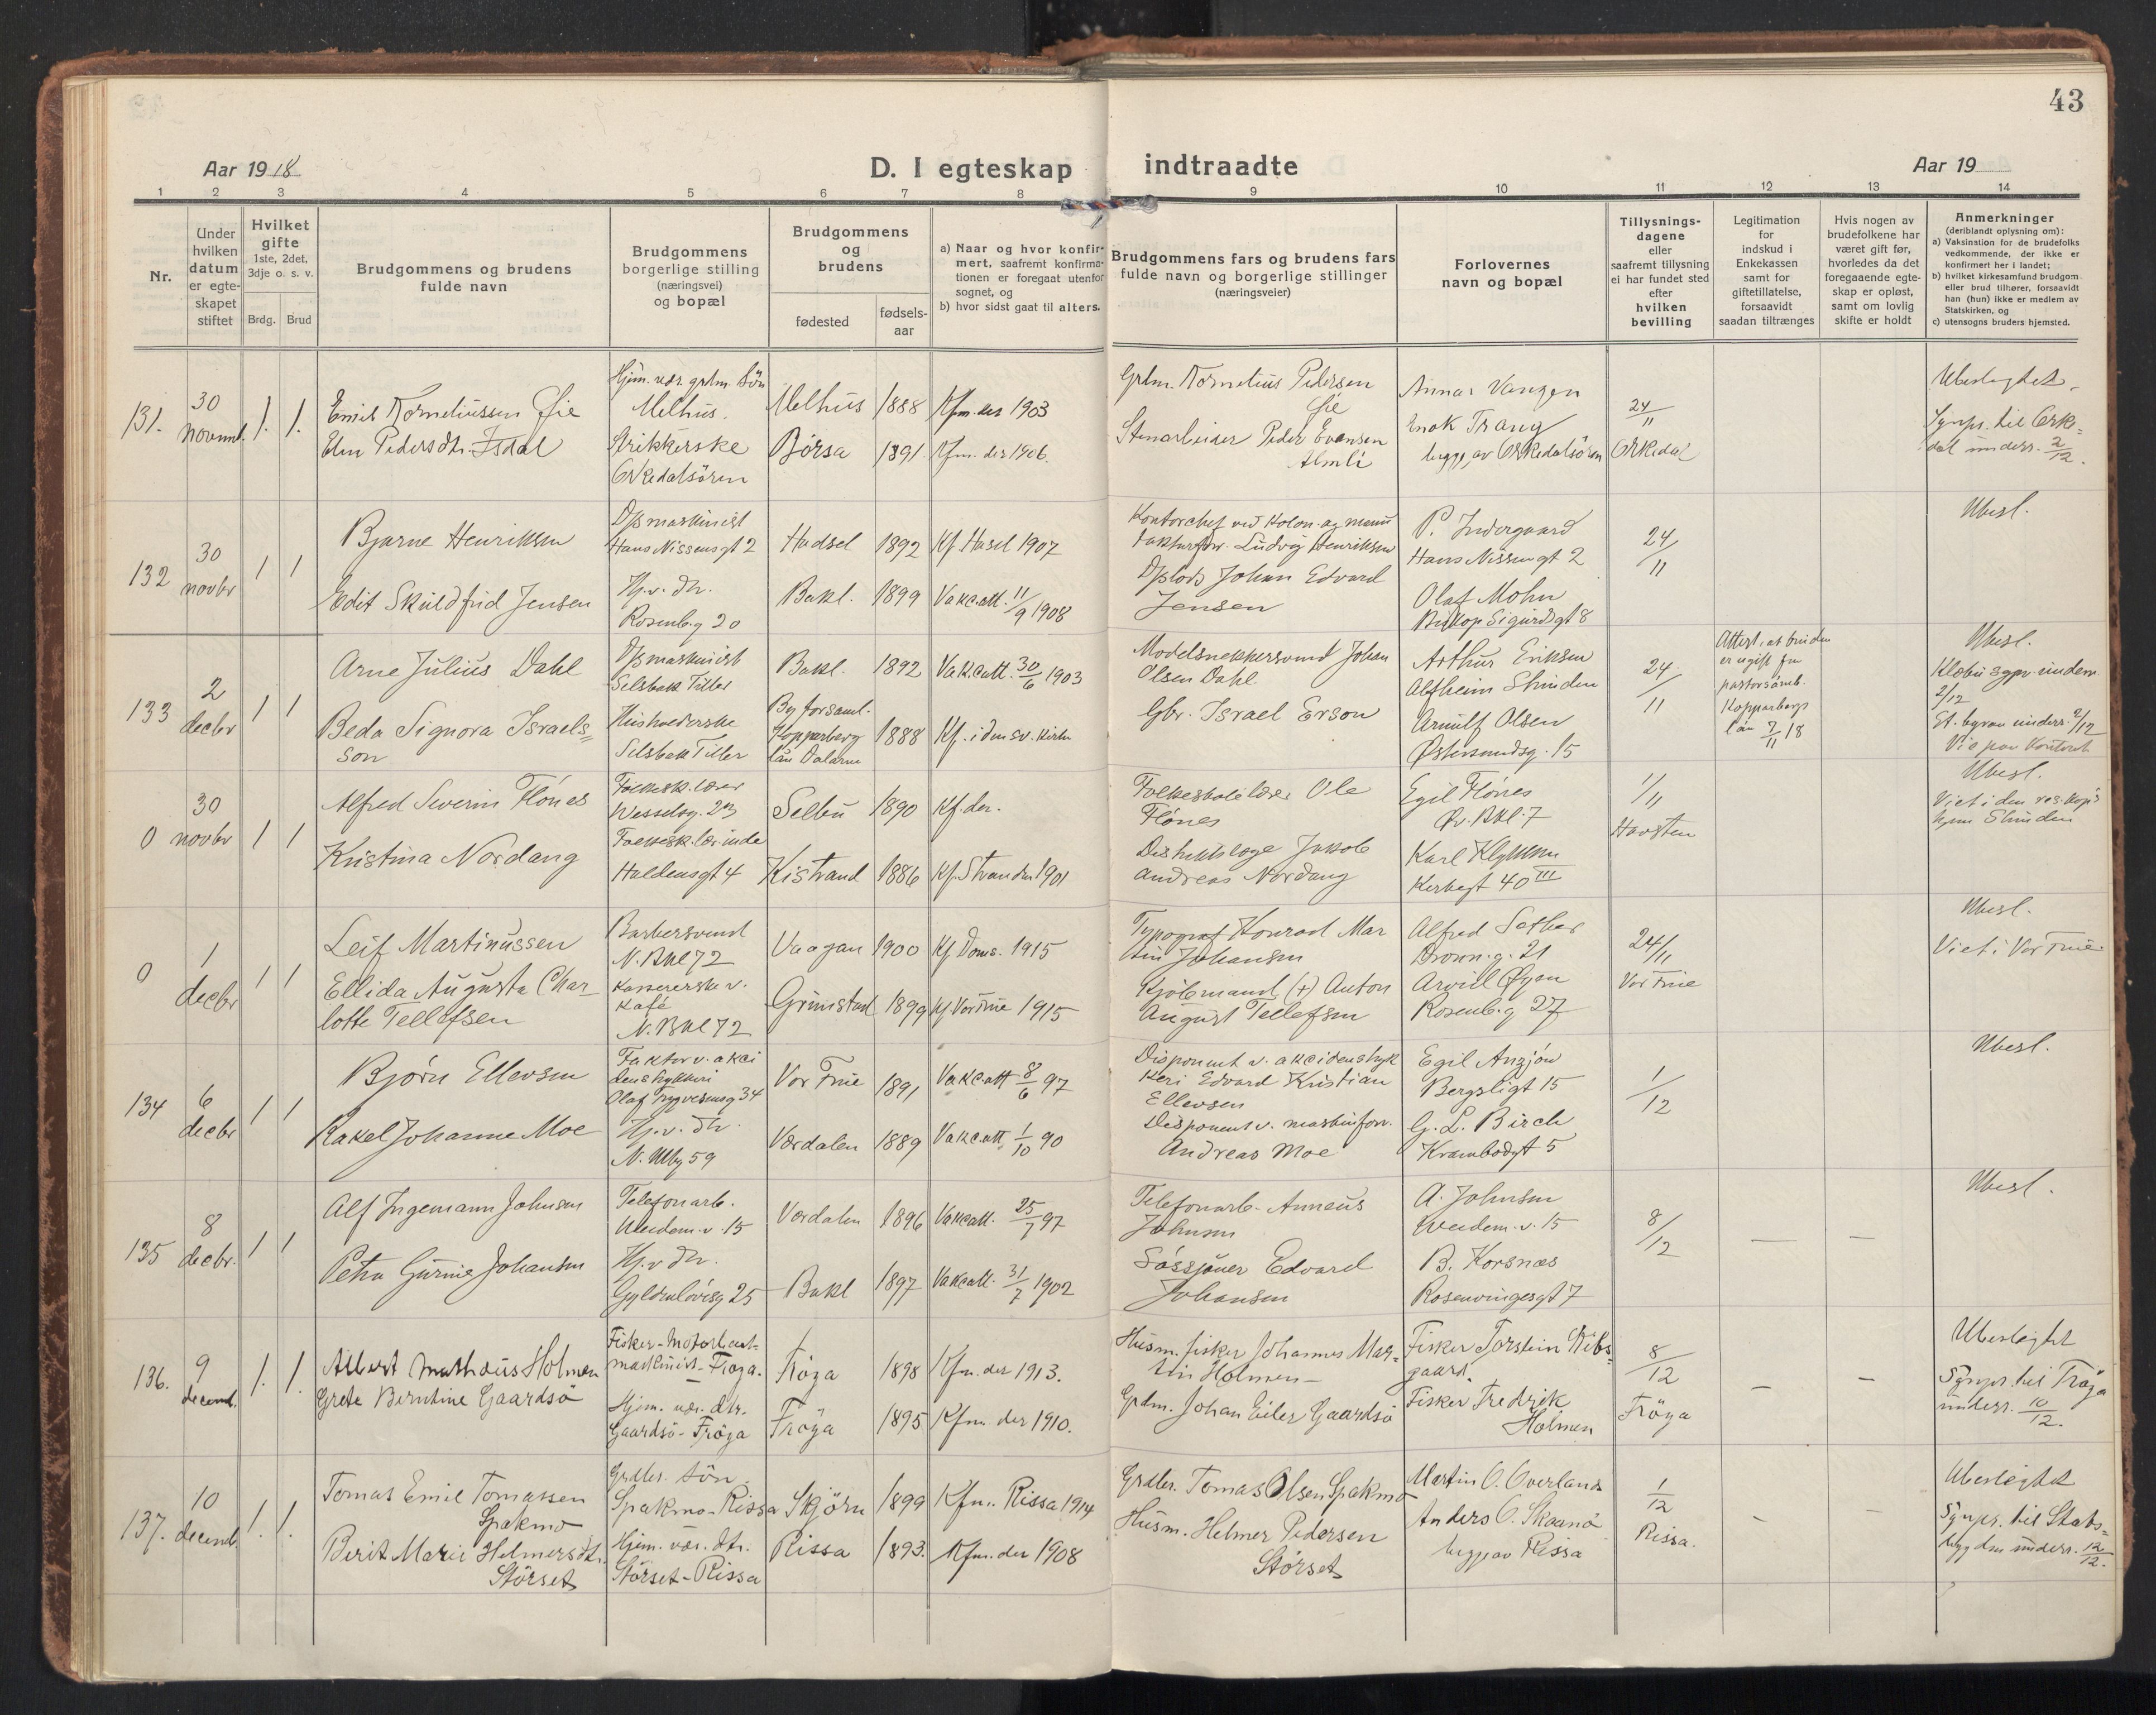 43
Aar 1918
D. I egteskap indtraadte
Aar 19
1 2 3 4 5 6 7 8 9 10 11 12 13 14
Nr.
Under hvilken datum er egteskapet stiftet
Hvilket gifte 1ste, 2det, 3dje o. s. v.
Brdg. Brud
Brudgommens og brudens fulde navn
Brudgommens borgerlige stilling (næringsvei) og bopæl
Brudgommens og brudens
fødested
fødsels-aar
a) Naar og hvor konfirmert, saafremt konfirmationen er foregaat utenfor sognet, og
b) hvor sidst gaat til alters.
Brudgommens fars og brudens fars fulde navn og borgerlige stillinger (næringsveier)
Forlovernes navn og bopæl
Tillysningsdagene eller saafremt tillysning ei har fundet sted efter hvilken bevilling
Legitimation for indskud i Enkekassen samt for giftetillatelse, forsaavidt saadan tiltrænges
Hvis nogen av brudefolkene har været gift før, hvorledes da det foregaaende egteskap er opløst, samt om lovlig skifte er holdt
Anmerkninger
(deriblandt oplysning om):
a) Vaksination for de brudefolks vedkommende, der ikke er konfirmert her i landet;
b) hvilket kirkesamfund brudgom eller brud tilhører, forsaavidt han (hun) ikke er medlem av Statskirken, og
c) utensogns bruders hjemsted.
131.
30 novemb.
1. 1.
Emil Korneliussen Øie
Elen Pedersdtr. Isdal
Hjem. vær. grdm. Søn
Melhus.
Strikkerske
Orkedalsören
Melhus 1888 Kfm. der 1903
Börsa 1891. Kfm. der 1906.
Grdm. Kornelius Pedersen
Øie
Stenarbeider Peder Evensen
Almli
Annar Vangen
Enok Trang
begge av Orkedalsören
24/11
Orkedal
Ubeslegtet.
Sgnpr. til Orke=
dal underr. 2/12.
132
30 novbr
1 1
Bjarne Henriksen
Edit Skuldfrid Jensen
Dpsmaskinist
Hans Nissensgt 2
Hj.v. dtr.
Rosenb.g 20
Hadsel 1892 Kf Hasel 1907
Bakl. 1899 Vakc.att. 11/9 1908
Kontorchef ved Kolon. og manu
fakturforr. Ludvig Henriksen
Dpslods Johan Edvard
Jensen
P. Indergaard
Hans Nissensgt 2
Olaf Mohn
Biskop Sigurdsgt 8
24/11
Ubesl.
133
2 decbr
1 1
Arne Julius Dahl
Beda Signora Israels=
son
Dpsmaskinist
Selsbak Tiller
Husholderske
Selsbak Tiller
Bakl. 1892 Vakc.att. 30/6 1903
By forsaml.
Kopparberg
län Dalarne
1888 Kf. i den sv. kirke
Modelsnekkersvend Johan
Olsen Dahl
Gbr. Israel Erson
Arthur Eriksen
Alfheim Strinden
Arnulf Olsen
Østersundsg. 15
24/11
Attest, at bruden
er ugift fra
pastorsämb.
Kopparbergs
län 7/11 18
Ubesl.
Klæbu sgpr. underr.
2/12
St. byraa underr. 2/12
Vie paa kontoret
0
30 novbr
1 1
Alfred Severin Flönes
Kristina Nordang
Folkesk.lærer
Wesselsg. 23
Folkesk.lærinde
Haldensgt 4
Selbu 1890 Kf. der.
Kistrand 1886 Kf. Stranden 1901
Folkeskolelærer Ole
Flönes
Distriktslæge Jakob
Andreas Nordang
Egil Flönes
Øv. Bkl. 7
Karl Klykken
Kirkegt 40 III
1/11
Havsten
Ubesl.
Viet i den res. kap's
hjem Strinden
0
1 decbr
1 1
Leif Martinussen
Ellida Augusta Char-
lotte Tellefsen
Barbersvend
N. Bkl 72
Kassererske v.
Kafé
N. Bkl 72
Vaagan 1900 Kf Doms. 1915
Grimstad 1899 Kf Vor Frue 1915
Typograf Konrad Mar
tin Johansen
Kjöbmand (+) Anton
August Tellefsen
Alfred Sether
Dronn.g. 21
Arvid Øyen
Rosenb.g 27
24/11
Vor Frue
Ubesl.
Viet i Vor Frue.
134
6 decbr
1 1
Bjórn Ellevsen
Rakel Johanne Moe
Faktor v. akci
denstrykkeri
Olaf Trygvesonsg 34
Hj.v. dtr.
N. Alle 59
Vor Frue 1891 Vakc.att 8/6 97
Værdalen 1889 Vakc.att 1/10 90
Disponent v. akcidenstryk
keri Edvard Kristian
Ellevsen
Disponent v. maskinforr.
Andreas Moe
Egil Anzjön
Bergsligt 15
G. L. Birch
Krambodgt 5
1/12
Ubesl.
135
8 decbr.
1 1
Alf Ingemann Johnsen
Petra Gurine Johansen
Telefonarb.
Weidem.v. 15
Hj.v dtr.
Gyldenlövesg 25
Værdalen 1896 Vakcatt. 25/7 97
Bakl 1897 Vakcatt. 31/7 1902
Telefonarb. Anneus
Johnsen
Sössjauer Edvard
Johansen
A. Johnsen
Weidem.v. 15
B. Korsnes
Rosenvingesgt 7
8/12
— —
Ubesl.
136.
9 decemb.
1. 1.
Albert Mathæus Holmen
Grete Berntine Gaardsö
Fisker-Motorbaat-
maskinist-Fröya.
Hjem. vær. dtr.
Gaardsö-Fröya
Fröya 1898 Kfm. der 1913.
Fröya 1895 Kfm der 1910.
Husm. fisker Johannes Mar=
tin Holmen
Grdm. Johan Eiler Gaardsö
Fisker Torstein Ribs=
gaard
Fisker Fredrik
Holmen
8/12
Fröya
— —
Ubeslegtet
Sgnpr. til Fröya
underr. 10/12.
137.
10 decemb.
1. 1.
Tomas Emil Tomassen
Spakmo
Berit Marie Helmersdtr.
Störset
Grdbr. Sön
Spakmo-Rissa
Hjem. vær. dtr.
Störset-Rissa
Skjörn 1899 Kfm. Rissa 1914
Rissa 1893. Kfm. der 1908
Grdbr. Tomas Olsen Spakmo
Husm. Helmer Pedersen
Störset
Martin O. Overland
Anders O. Skaanö
begge av Rissa
1/12
Rissa.
- -
Ubeslegtet
Sgnpr. til Stads=
bygden underr. 12/12.